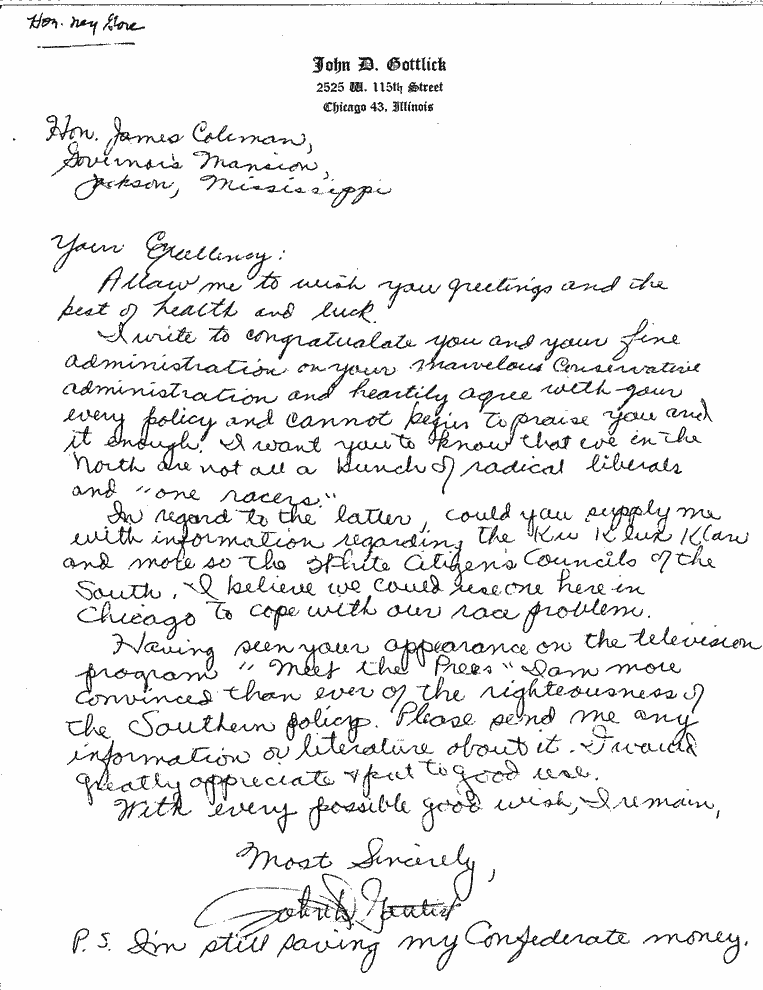 Hon. Ney Gore
John D. Gottlick
2525 W. 115th Street
Chicago 43, Illinois
Hon. James Coleman,
Governor's Mansion,
Jackson, Mississippi
Your Excellency:
Allow me to wish you greetings and the
best of health and luck.
I write to congratualate you and your fine
administration on your marvelous Conservative
administration and heartily agree with your
every policy and cannot begin to praise you and
it enough. I want you to know that we in the
North are not all a bunch of radical liberals
and "one racers."
In regard to the latter, could you supply me
with information regarding the Ku Klux Klan
and more so the White Citizens Councils of the
South. I believe we could use one here in
Chicago to cope with our race problem.
Having seen your appearance on the television
program "Meet the Press" I am more
convinced than ever of the righteousness of
the Southern policy. Please send me any
information or literature about it. I would
greatly appreciate & put to good use.
With every possible good wish, I remain,
Most Sincerely,
John D. Gottlick
P.S. I'm still saving my Confederate money.